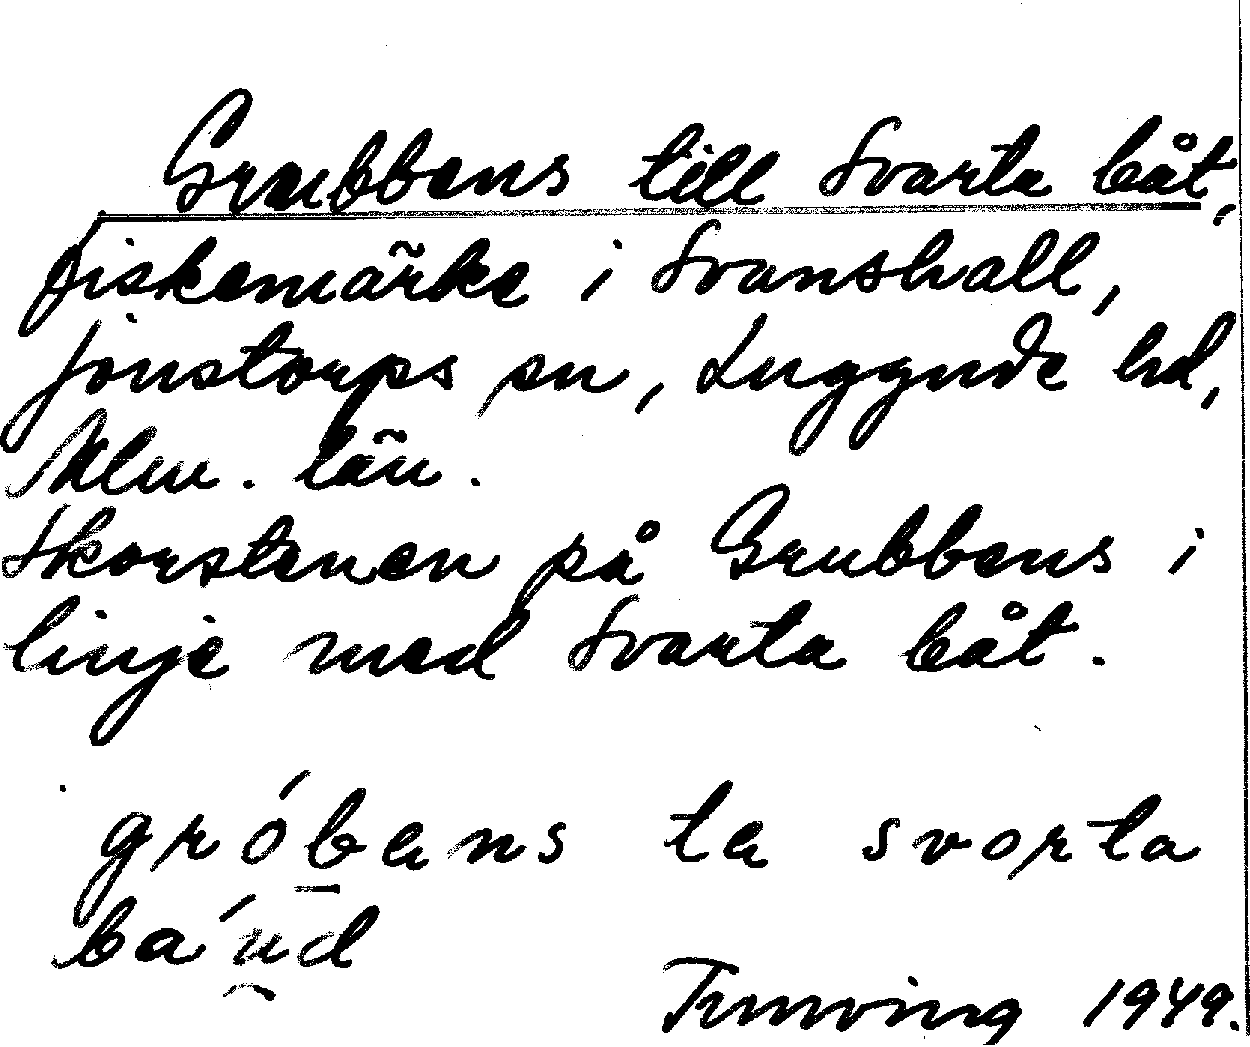 Grubbens till Svarta båt,
fiskemärke i Svanshall,
Jonstorps sn, Luggude hd,
Mlm. län.
Skorstenen på Grubbens i
linje med Svarta båt.
grób̲ens te svorta
ba´u̯d
Tunving 1949.